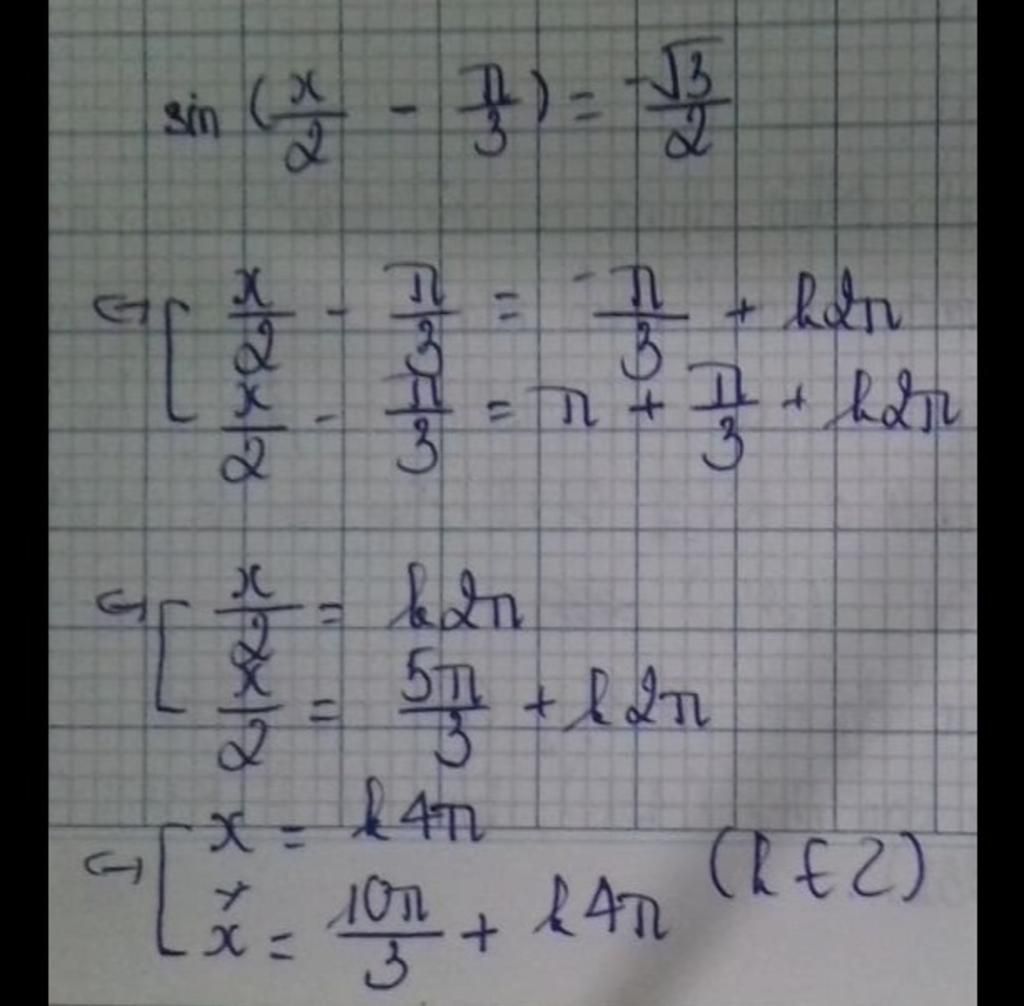 sin (x/2 - π/3) = -√3/2
⇔ [ x/2 - π/3 = -π/3 + k2π
x/2 - π/3 = π + π/3 + k2π
⇔ [ x/2 = k2π
x/2 = 5π/3 + k2π
⇔ [ x = k4π
x = 10π/3 + k4π (k ∈ Z)